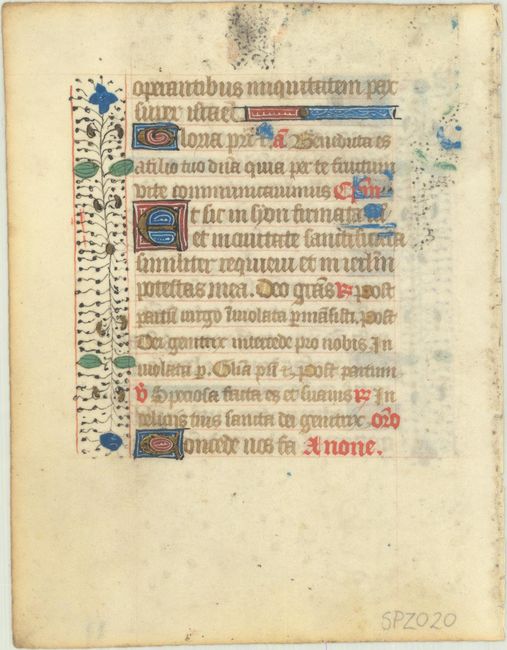 operantibus iniquitatem pax
super israel
Gloria pri &c a Benedicta es
a filio tuo dña quia per te fructum
vite communicauimus Cm
Et sic in syon firmata su
et in ciuitate sanctificata
similiter requieui et in ierlm
potestas mea. Deo grãs R Post
partũ virgo Inuiolata pmãsisti. Post
Dei genitrix intercede pro nobis. In
uiolata p. Glia pri &c. Post partum
V Speciosa facta es et suauis R In
deliciis tuis sancta dei genitrix. orõ
Concede nos fa A none.
SPZ020